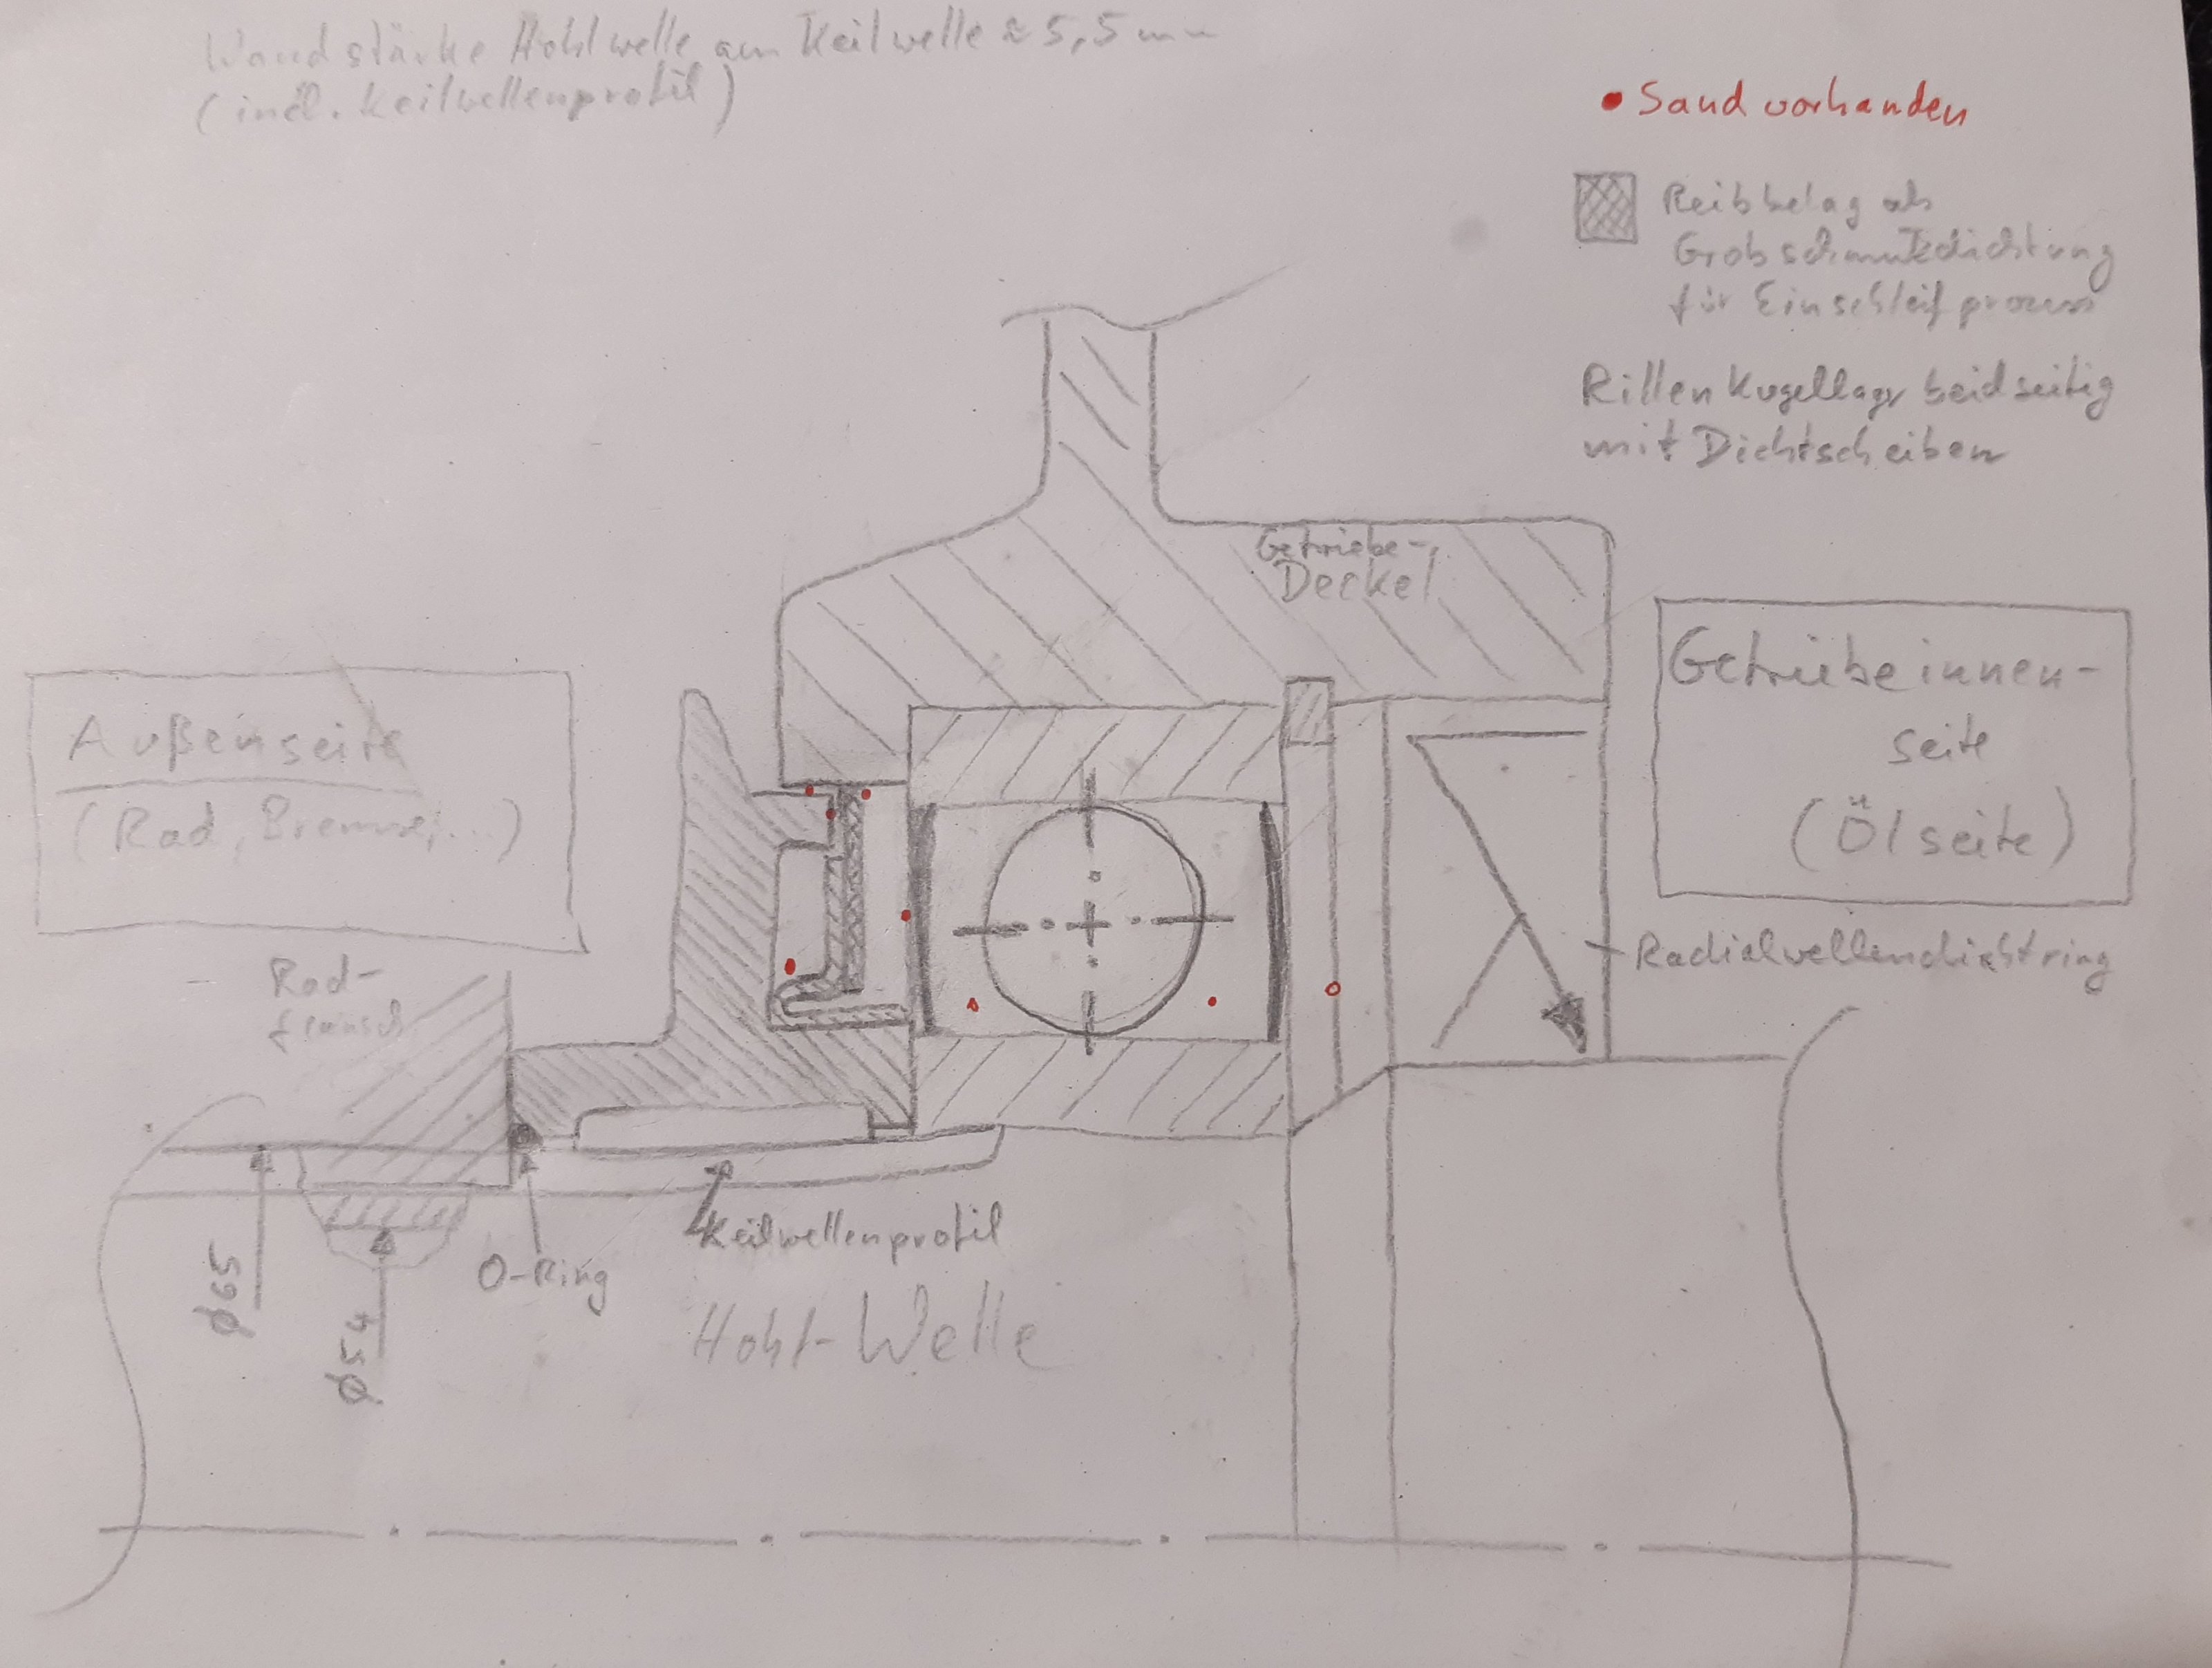 Wandstärke Hohlwelle am Keilwelle ≈ 5,5 mm
(incl. Keilwellenprofil)
• Sand vorhanden
Reibbelag als
Grobschmutzdichtung
für Einschleifprozess
Rillenkugellager beidseitig
mit Dichtscheiben
Getriebe-
Deckel
Außenseite
(Rad, Bremse, ...)
Getriebeinnen-
seite
(Ölseite)
Radialwellendichtring
Rad-
flansch
Keilwellenprofil
O-Ring
Hohl-Welle
ϕ65
ϕ54